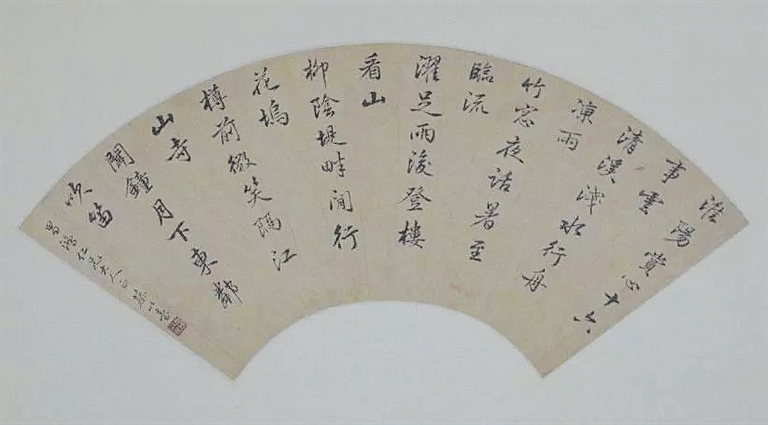 淮陽賞心十六
事雲
清溪淺水行舟
凍雨
竹窓夜話暑至
臨流
濯足雨後登樓
看山
柳陰堤畔閒行
花塢
樽前微笑隔江
山寺
聞鐘月下東鄰
吹笛
仁兄大人